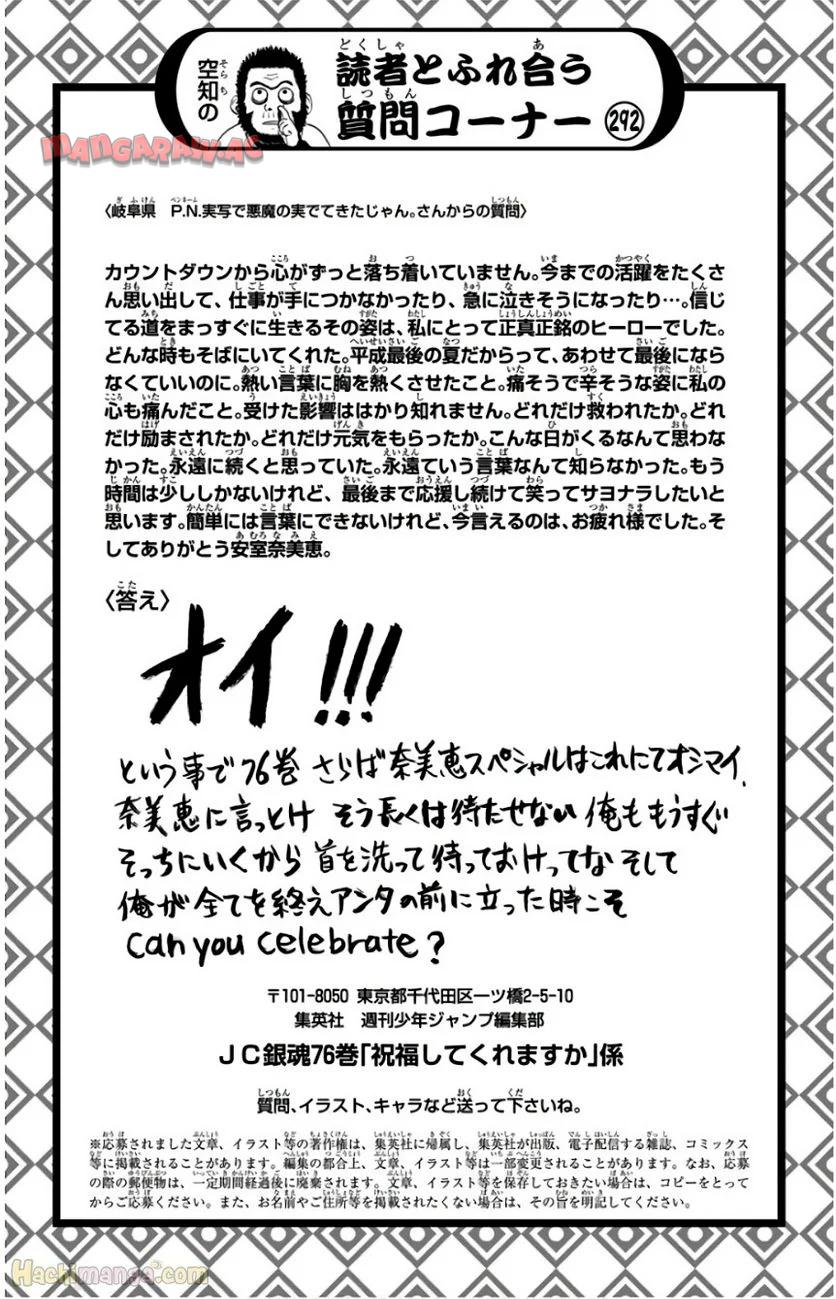 空知の
読者とふれ合う
質問コーナー 292
MANGARAW.AC
〈岐阜県　P.N.実写で悪魔の実でてきたじゃん。さんからの質問〉
カウントダウンから心がずっと落ち着いていません。今までの活躍をたくさ
ん思い出して、仕事が手につかなかったり、急に泣きそうになったり…。信じ
てる道をまっすぐに生きるその姿は、私にとって正真正銘のヒーローでした。
どんな時もそばにいてくれた。平成最後の夏だからって、あわせて最後になら
なくていいのに。熱い言葉に胸を熱くさせたこと。痛そうで辛そうな姿に私の
心も痛んだこと。受けた影響ははかり知れません。どれだけ救われたか。どれ
だけ励まされたか。どれだけ元気をもらったか。こんな日がくるなんて思わな
かった。永遠に続くと思っていた。永遠ていう言葉なんて知らなかった。もう
時間は少ししかないけれど、最後まで応援し続けて笑ってサヨナラしたいと
思います。簡単には言葉にできないけれど、今言えるのは、お疲れ様でした。そ
してありがとう安室奈美恵。
〈答え〉
オイ!!!
という事で76巻 さらば奈美恵スペシャルはこれにてオシマイ、
奈美恵に言っとけ そう長くは待たせない 俺ももうすぐ
そっちにいくから 首を洗って待っておけってな そして
俺が全てを終えアンタの前に立った時こそ
can you celebrate?
〒101-8050 東京都千代田区一ツ橋2-5-10
集英社　週刊少年ジャンプ編集部
JC銀魂76巻「祝福してくれますか」係
質問、イラスト、キャラなど送って下さいね。
※応募されました文章、イラスト等の著作権は、集英社に帰属し、集英社が出版、電子配信する雑誌、コミックス
等に掲載されることがあります。編集の都合上、文章、イラスト等は一部変更されることがあります。なお、応募
の際の郵便物は、一定期間経過後に廃棄されます。文章、イラスト等を保存しておきたい場合は、コピーをとって
からご応募ください。また、お名前やご住所等を掲載されたくない場合は、その旨を明記してください。
Hachimanga.com